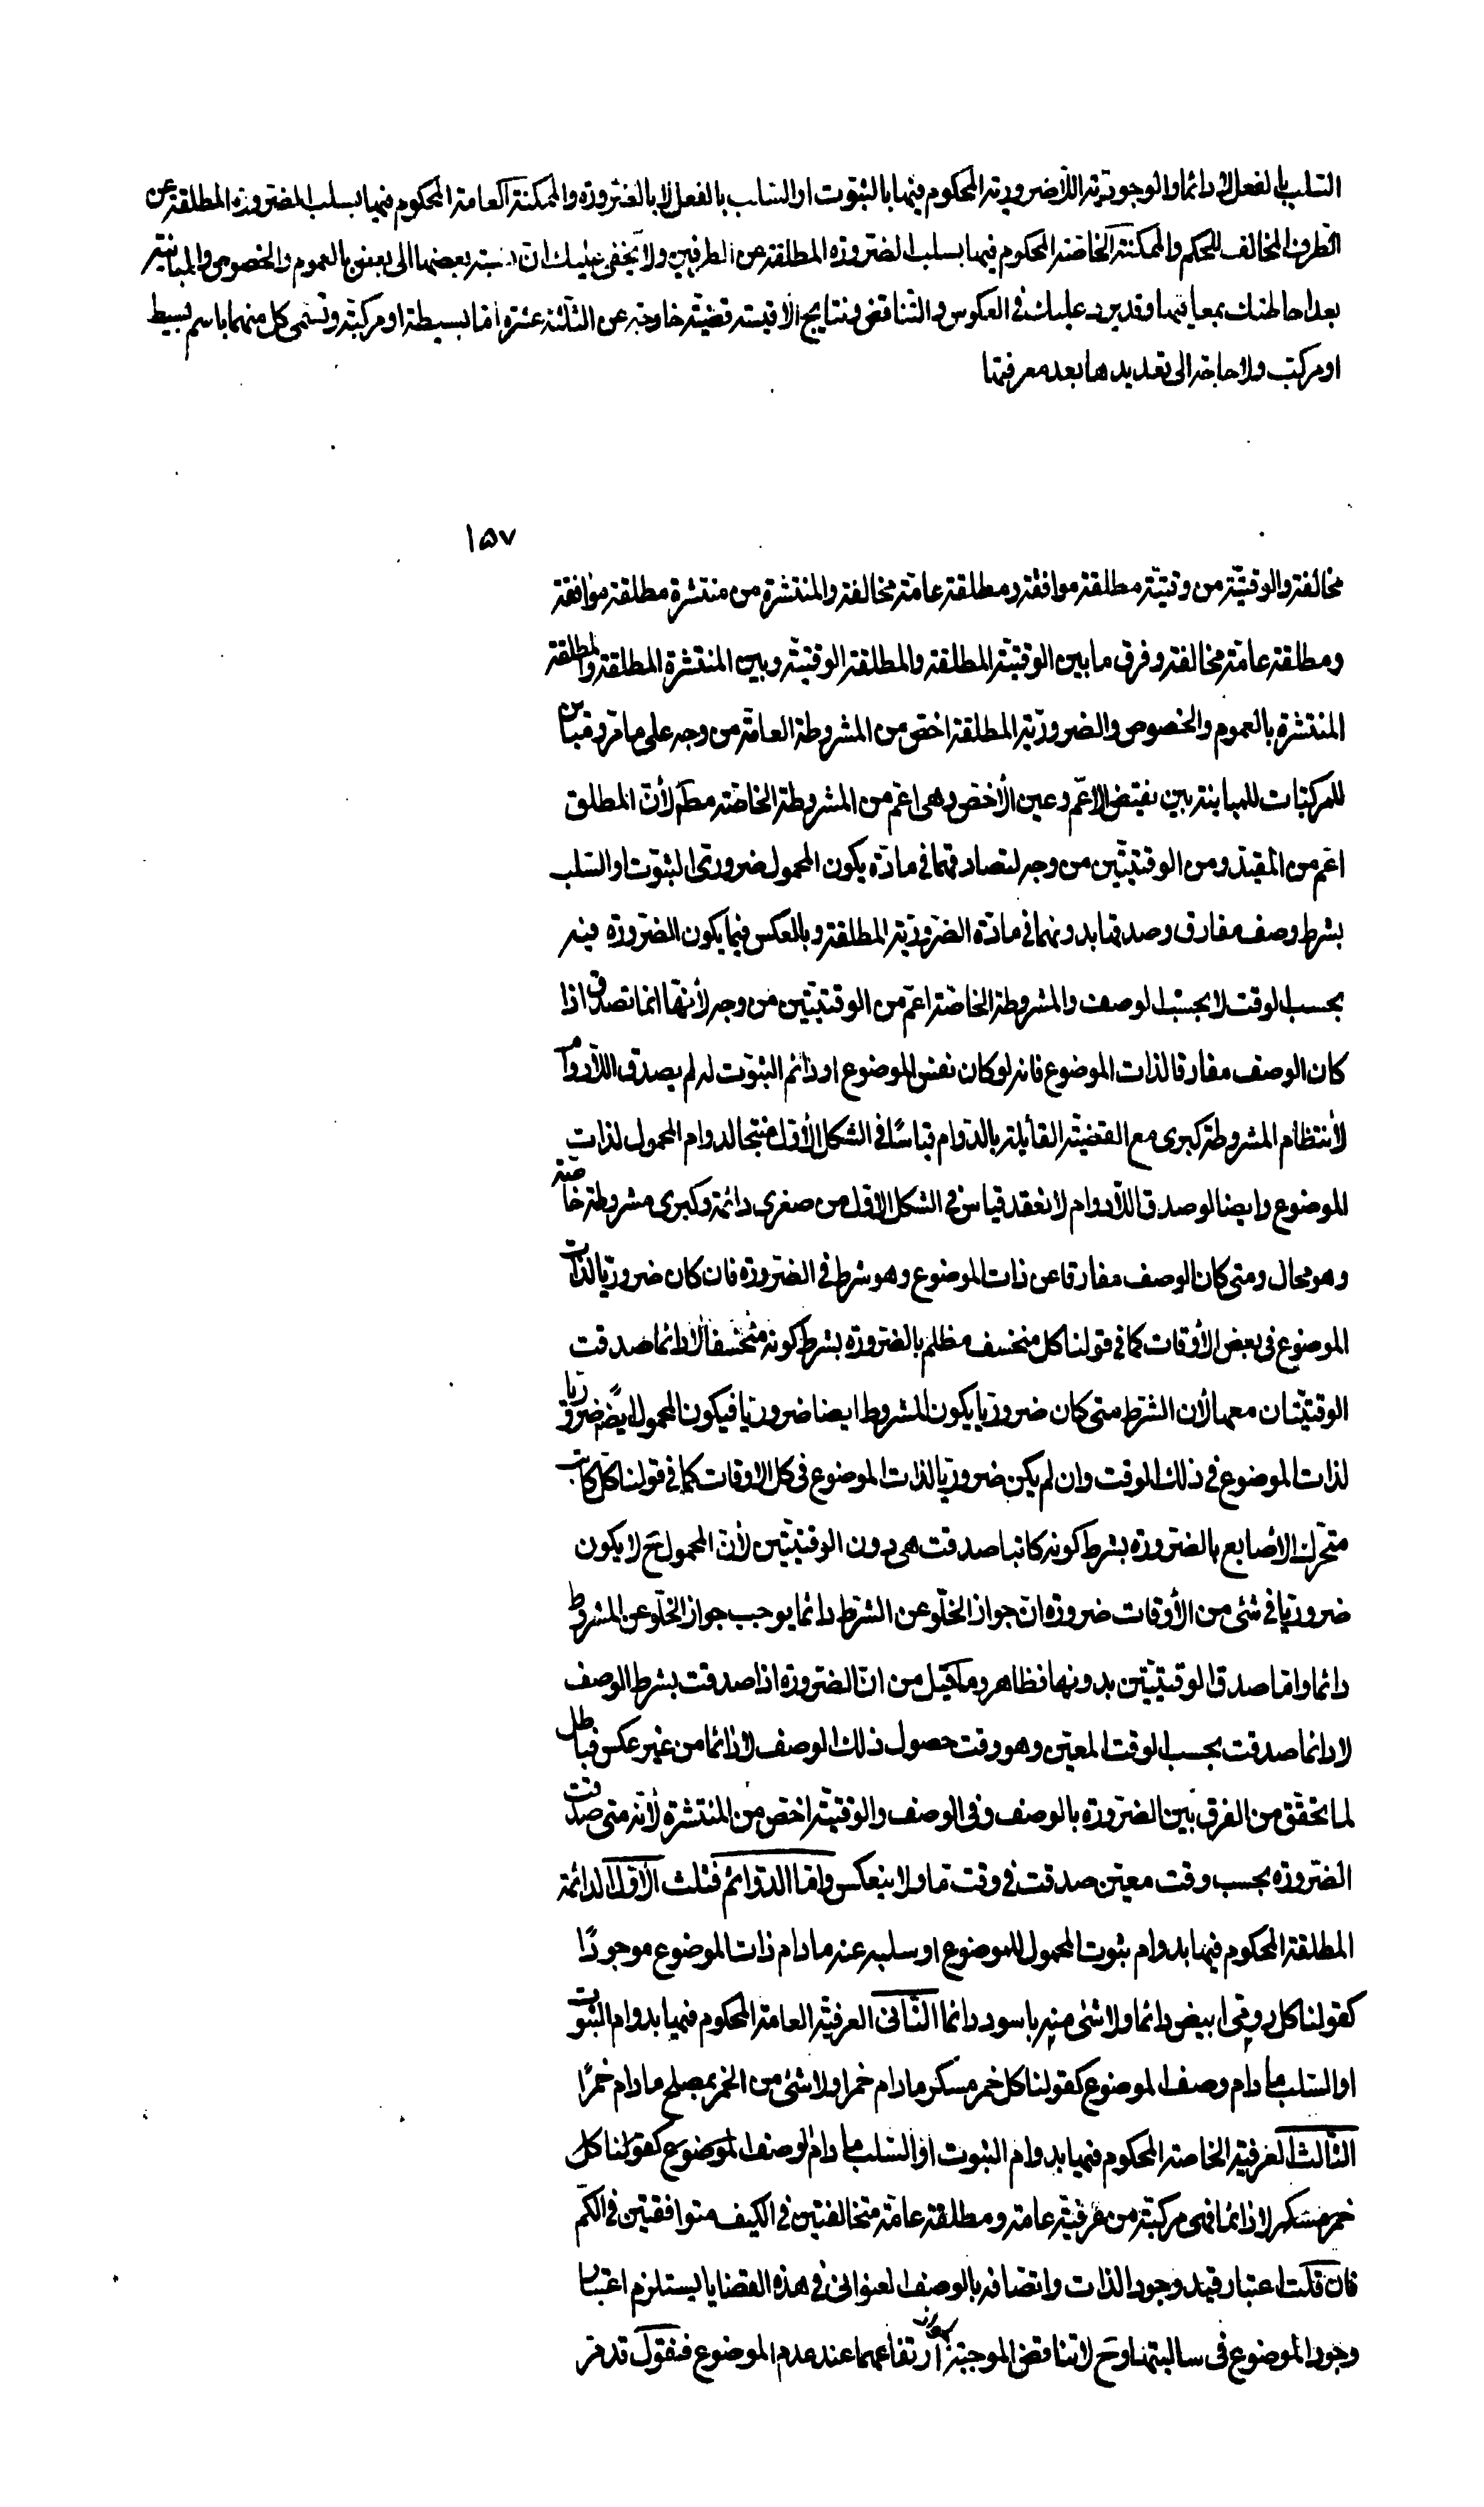 السّلب بالفعل لا دائما والوجوديّة اللّاضروريّة المحكوم فيها بالثبوت او السّلب بالفعل لا بالضّرورة والممكنة العامة المحكوم فيها بسلب الضّرورة المطلقة عن
الطّرف المخالف للحكم والممكنة الخاصّة المحكوم فيها بسلب الضّرورة المطلقة عن الطرفين ولا يخفى عليك انّ نسبة بعضها الى بعض بالعموم والخصوص والمباينة
بعد احاطتك بمعانيها وقد يرد عليك فى العكوس والتّناقض ونتايج الاقيسة قضيّة خارجة عن الثلثة عشرة امّا بسيطة او مركبّة وتسمّى كل منهما باسم بسيط
او مركبّ ولا حاجة الى تعديدها بعد معرفتها
١٥٧
مخالفة والوقتيّة من وقتيّة مطلقة موافقة ومطلقة عامّة مخالفة والمنتشرة من منتشرة مطلقة موافقة
ومطلقة عامّة مخالفة وفرق ما بين الوقتيّة المطلقة والمطلقة الوقتيّة وبين المنتشرة المطلقة والمطلقة
المنتشرة بالعموم والخصوص والضروريّة المطلقة اخصّ من المشروطة العامّة من وجه على ما مرّ ومباين
للمركبّات للمباينة بين نقيض الاعمّ وعين الأخصّ وهى اعمّ من المشروطة الخاصّة مطلقا لأنّ المطلق
اعمّ من المقيّد ومن الوقتيّتين من وجه لتصادقهما فى مادّة يكون المحمول ضرورىّ الثبوت او السّلب
بشرط وصف مفارق وصدقها بدونهما فى مادّة الضّروريّة المطلقة وبالعكس فيما يكون الضّرورة فيه
بحسب الوقت لا بحسب الوصف والمشروطة الخاصّة اعمّ من الوقتيّتين من وجه لأنّها انما تصدق اذا
كان الوصف مفارقا لذات الموضوع فانه لو كان نفس الموضوع او دائم الثبوت له لم يصدق اللّادوام
لأنتظام المشروطة كبرى مع القضيّة القائلة بالدّوام قياسًا فى الشكل الأوّل منتجا لدوام المحمول لذات
الموضوع وايضا لو صدق اللّادوام لانعقد قياس فى الشكل الاوّل من صغرى دائمة وكبرى مشروطة خاصّة
وهو محال ومتى كان الوصف مفارقا عن ذات الموضوع وهو شرط فى الضّرورة فان كان ضروريّا لذات
الموضوع فى بعض الأوقات كما فى قولنا كل منخسف مظلم بالضّرورة بشرط كونه منخسفا لا دائما صدقت
الوقتيّتان معها لأن الشّرط متى كان ضروريّا يكون المشروط ايضا ضروريّا فيكون المحمول ايضً ضروريّا
لذات الموضوع فى ذلك الوقت وان لم يكن ضروريّا لذات الموضوع فى كل الاوقات كما فى قولنا كلّ كاتب
متحرّك الأصابع بالضّرورة بشرط كونه كاتبا صدقت هى دون الوقتيّتين لأنّ المحمول ح لا يكون
ضروريّا فى شئ من الأوقات ضرورة انّ جواز الخلّو عن الشرّط دائما يوجب جواز الخلّو عن المشروط
دائما وامّا صدق الوقتيّتين بدونها فظاهر وما قيل من انّ الضّرورة اذا صدقت بشرط الوصف
لا دائما صدقت بحسب الوقت المعيّن وهو وقت حصول ذلك الوصف لا دائما من غير عكس فباطل
لما تحقّق من الفرق بين الضّرورة بالوصف وفى الوصف والوقتيّة اخصّ من المنتشرة لأنّه متى صدقت
الضّرورة بحسب وقت معيّن صدقت فى وقت مّا ولا ينعكس وامّا الدّوائم فثلث الأوّل الدائمة
المطلقة المحكوم فيها بدوام ثبوت المحمول للموضوع او سلبه عنه ما دام ذات الموضوع موجودًا
كقولنا كل رومىّ ابيض دائما ولا شئ منه باسود دائما الثّانى العرفيّة العامة المحكوم فيها بدوام الثبوت
او السّلب ما دام وصف الموضوع كقولنا كل خمر مسكر ما دام خمرا ولا شئ من الخمر بمصلح ما دام خمرًا
الثّالث العرفيّة الخاصة المحكوم فيها بدوام الثبوت او السّلب ما دام الوصف الموضوع كقولنا كل
خمر مسكر لا دائما فهى مركبّة من عرفيّة عامة ومطلقة عامّة متخالفتين فى الكيف متوافقتين فى الكمّ
فان قلت اعتبار قيد وجود الذات واتّصافه بالوصف العنوانى فى هذه القضايا يستلزم اعتبار
وجود الموضوع فى سالبتها وح لا تناقض الموجبة ارتفاعهما عند عدم الموضوع فنقول قد مرّ